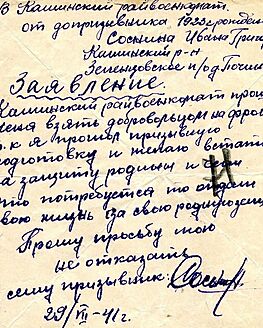 В Кашинский райвоенкомат.
от допризывника 1923г рожден
Соснина Ивана Григ
Кашинский р-н
Зеленцовское п/од. Почин
Заявление
Кашинский райвоенкомат прош
меня взять добровольцем на фрон
т.к я прошол призывную
подготовку и желаю встать
на защиту родины и если
это потребуется то отдам
свою жизнь за свою родину
Прошу просьбу мою
не отказать
сему призывник:
29/VII-41г.